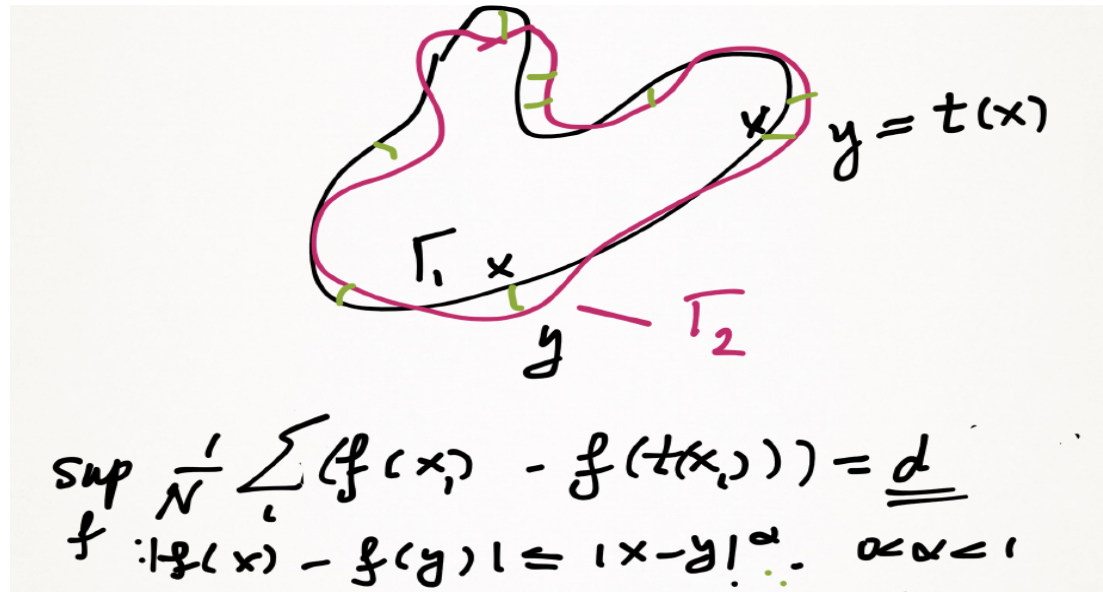 x
y = t(x)
Γ₁ x
Γ₂
y
sup 1/N Σ (f(xᵢ) - f(t(xᵢ))) = d
f i
: |f(x) - f(y)| ≤ |x-y|^α. 0<α<1